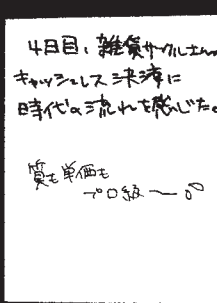 4日目、雑貨サークルさんの
キャッシュレス決済に
時代の流れを感じた。
質も単価も
プロ級〜。